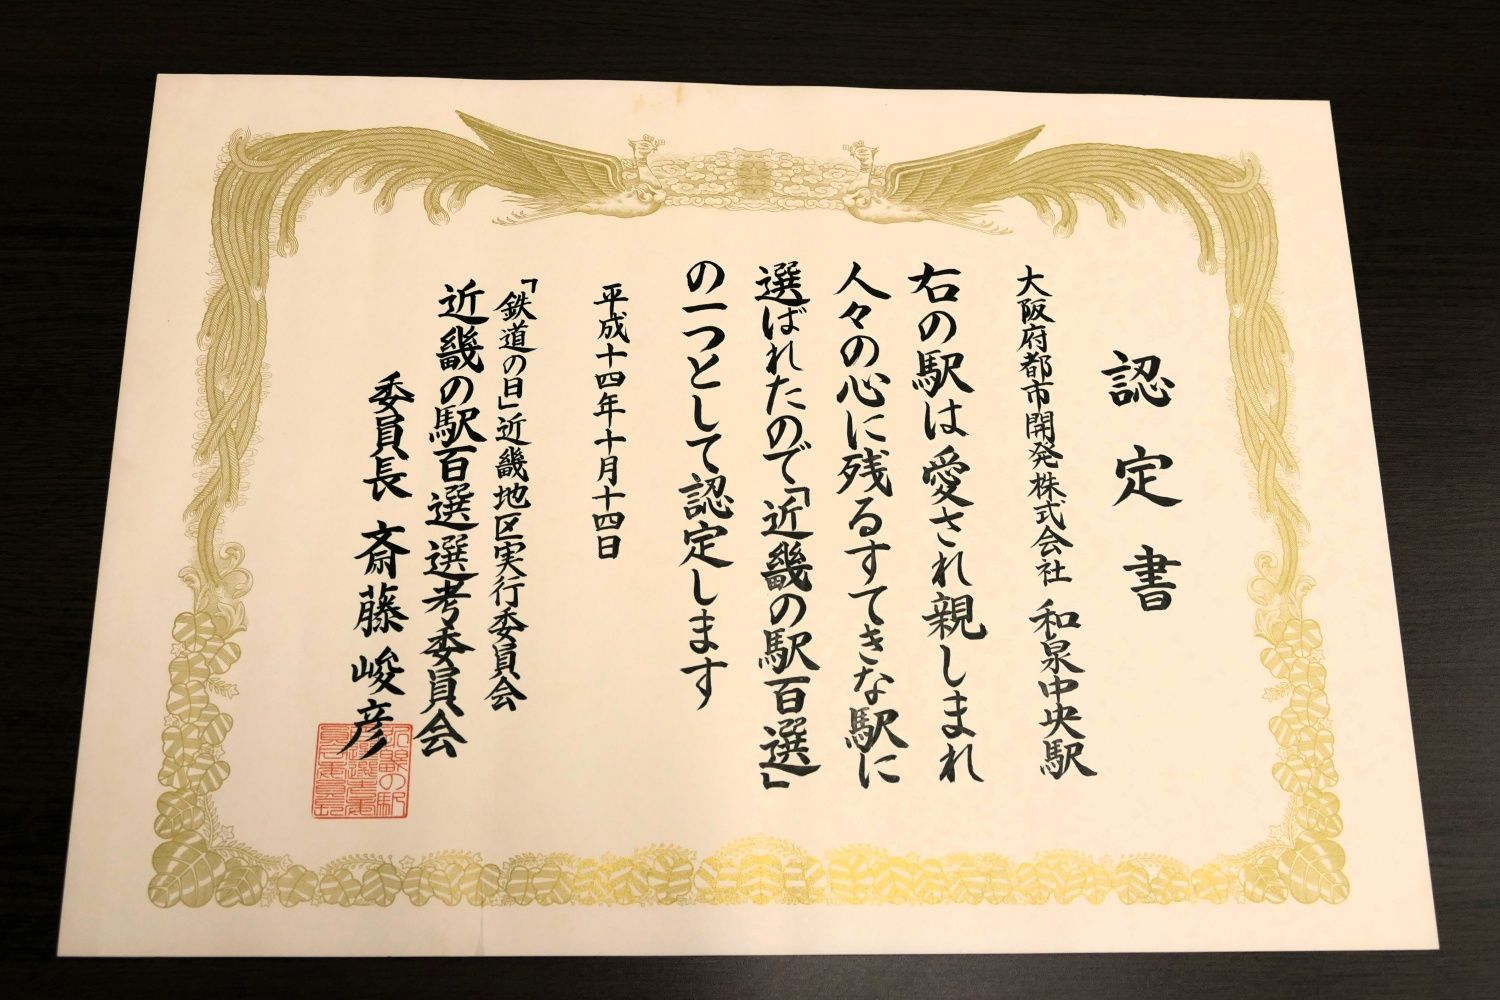 認定書
大阪府都市開発株式会社 和泉中央駅
右の駅は愛され親しまれ
人々の心に残るすてきな駅に
選ばれたので「近畿の駅百選」
の一つとして認定します
平成十四年十月十四日
「鉄道の日」近畿地区実行委員会
近畿の駅百選選考委員会
委員長 斎藤峻彦